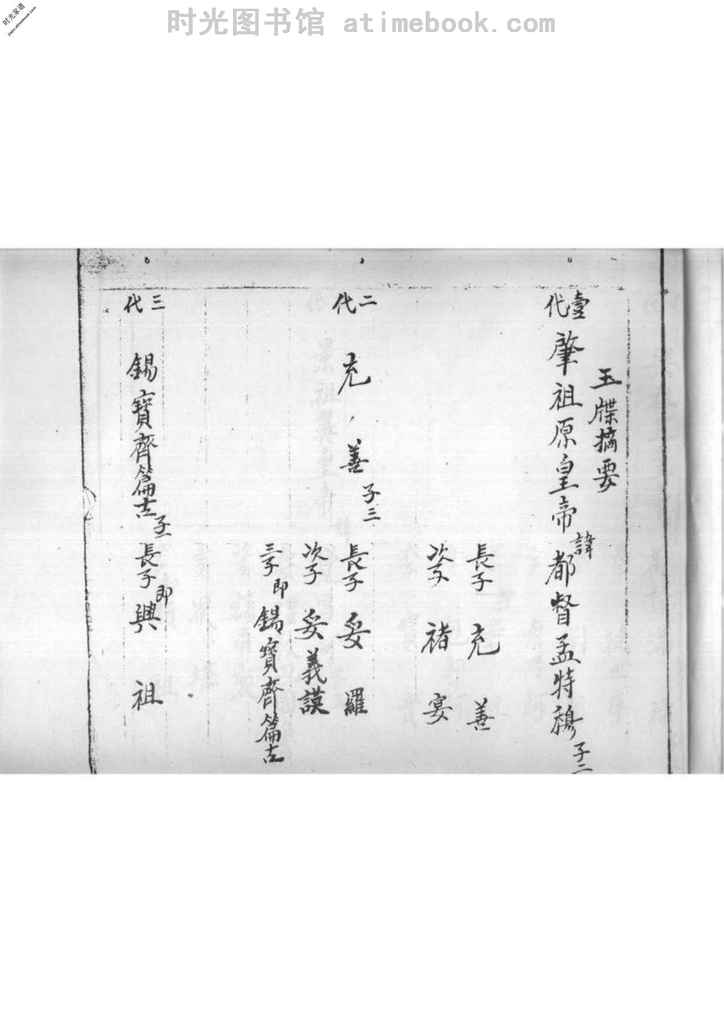 时光图书馆 atimebook.com
时光家谱
www.atimebook.com
玉牒摘要
壹代 肇祖原皇帝諱都督孟特穆 子二
長子 充善
次子 褚宴
二代 充善 子三
長子 妥羅
次子 妥義謨
三子 即 錫寶齊篇古
三代 錫寶齊篇古 子一
長子 即 興祖